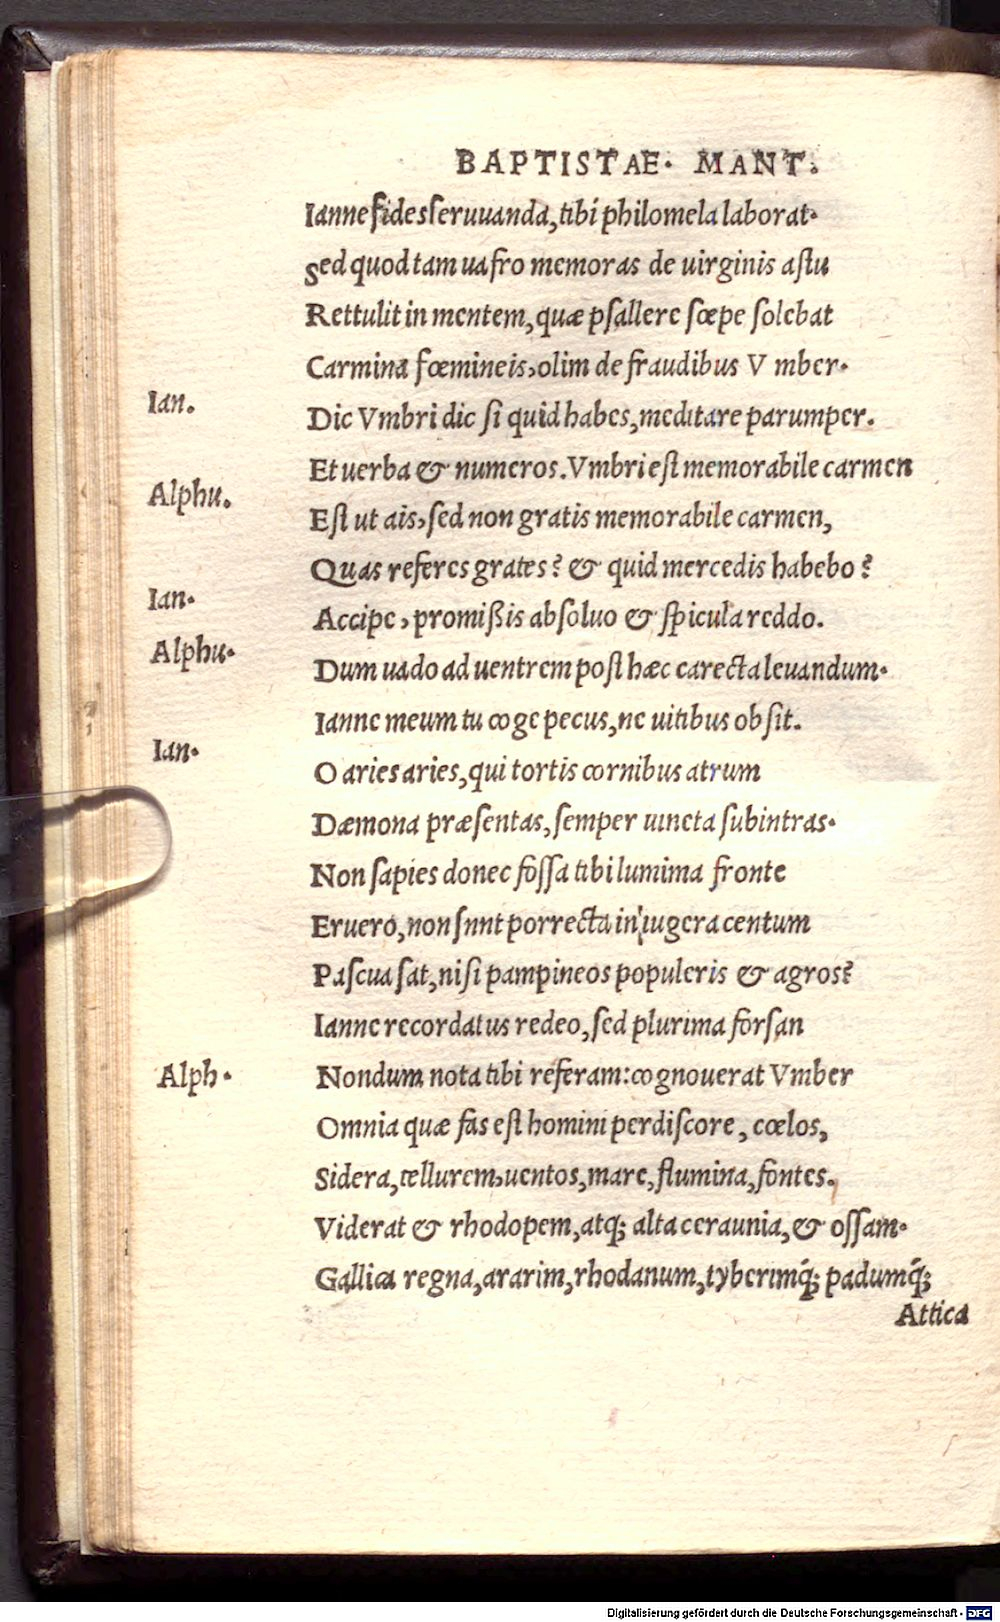 BAPTISTAE. MANT.
Ianne fides seruuanda, tibi philomela laborat.
Sed quod tam uafro memoras de uirginis astu
Rettulit in mentem, quæ psallere sœpe solebat
Carmina fœmineis, olim de fraudibus V mber.
Ian.
Dic Vmbri dic si quid habes, meditare parumper.
Et uerba & numeros. Vmbri est memorabile carmen
Alphu.
Est ut ais, sed non gratis memorabile carmen,
Quas referes grates? & quid mercedis habebo?
Ian.
Accipe, promißis absoluo & spicula reddo.
Alphu.
Dum uado ad uentrem post hæc carecta leuandum.
Ianne meum tu coge pecus, ne uitibus obsit.
Ian.
O aries aries, qui tortis cornibus atrum
Dæmona præsentas, semper uincta subintras.
Non sapies donec fossa tibi lumima fronte
Eruero, non snnt porrecta in iugera centum
Pascua sat, nisi pampineos populeris & agros?
Ianne recordatus redeo, sed plurima forsan
Alph.
Nondum nota tibi referam: cognouerat Vmber
Omnia quæ fas est homini perdiscore, cœlos,
Sidera, tellurem, uentos, mare, flumina, fontes.
Viderat & rhodopem, atq; alta ceraunia, & ossam.
Gallica regna, ararim, rhodanum, tyberimq́; padumq́;
Attica
Digitalisierung gefördert durch die Deutsche Forschungsgemeinschaft - DFG